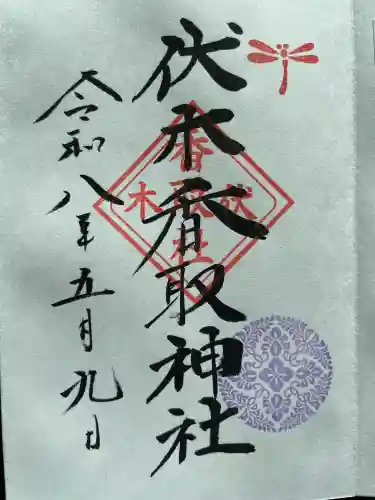 伏木香取神社
令和八年五月九日
香取社
伏木